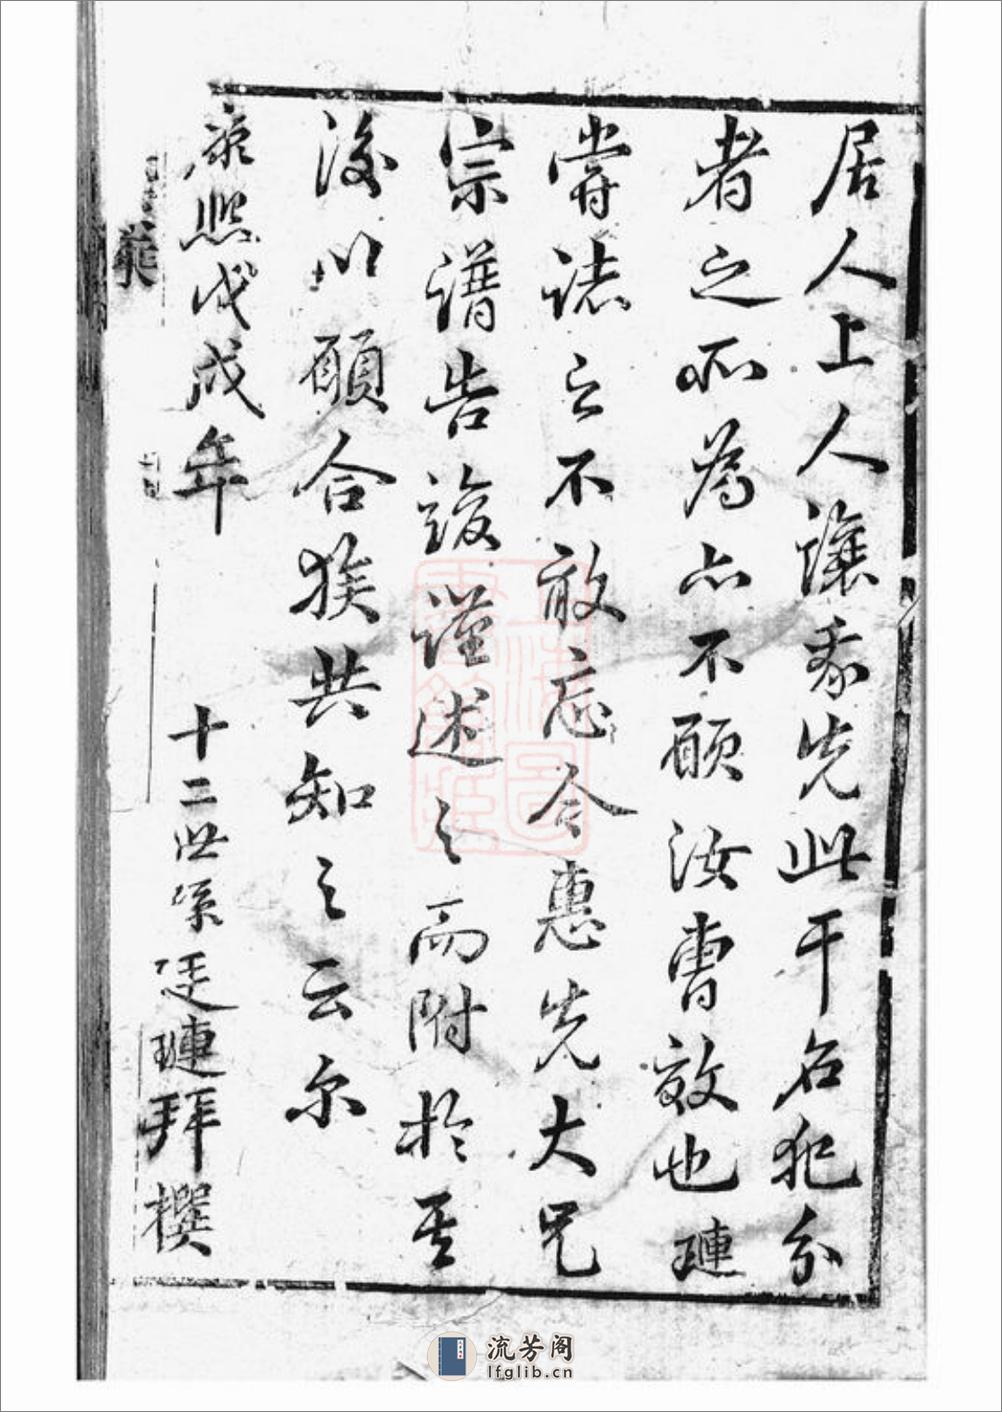 居人上人讓黍先此干名犯分
者之所為亦不願汝曹效也璉
嘗誌之不敢忘今惠先大兄
宗譜告竣謹述之而附於其
後以願合族共知之云尔
康熙戊戌年
十二世孫廷璉拜撰
上海圖書館藏
流芳阁
lfglib.cn